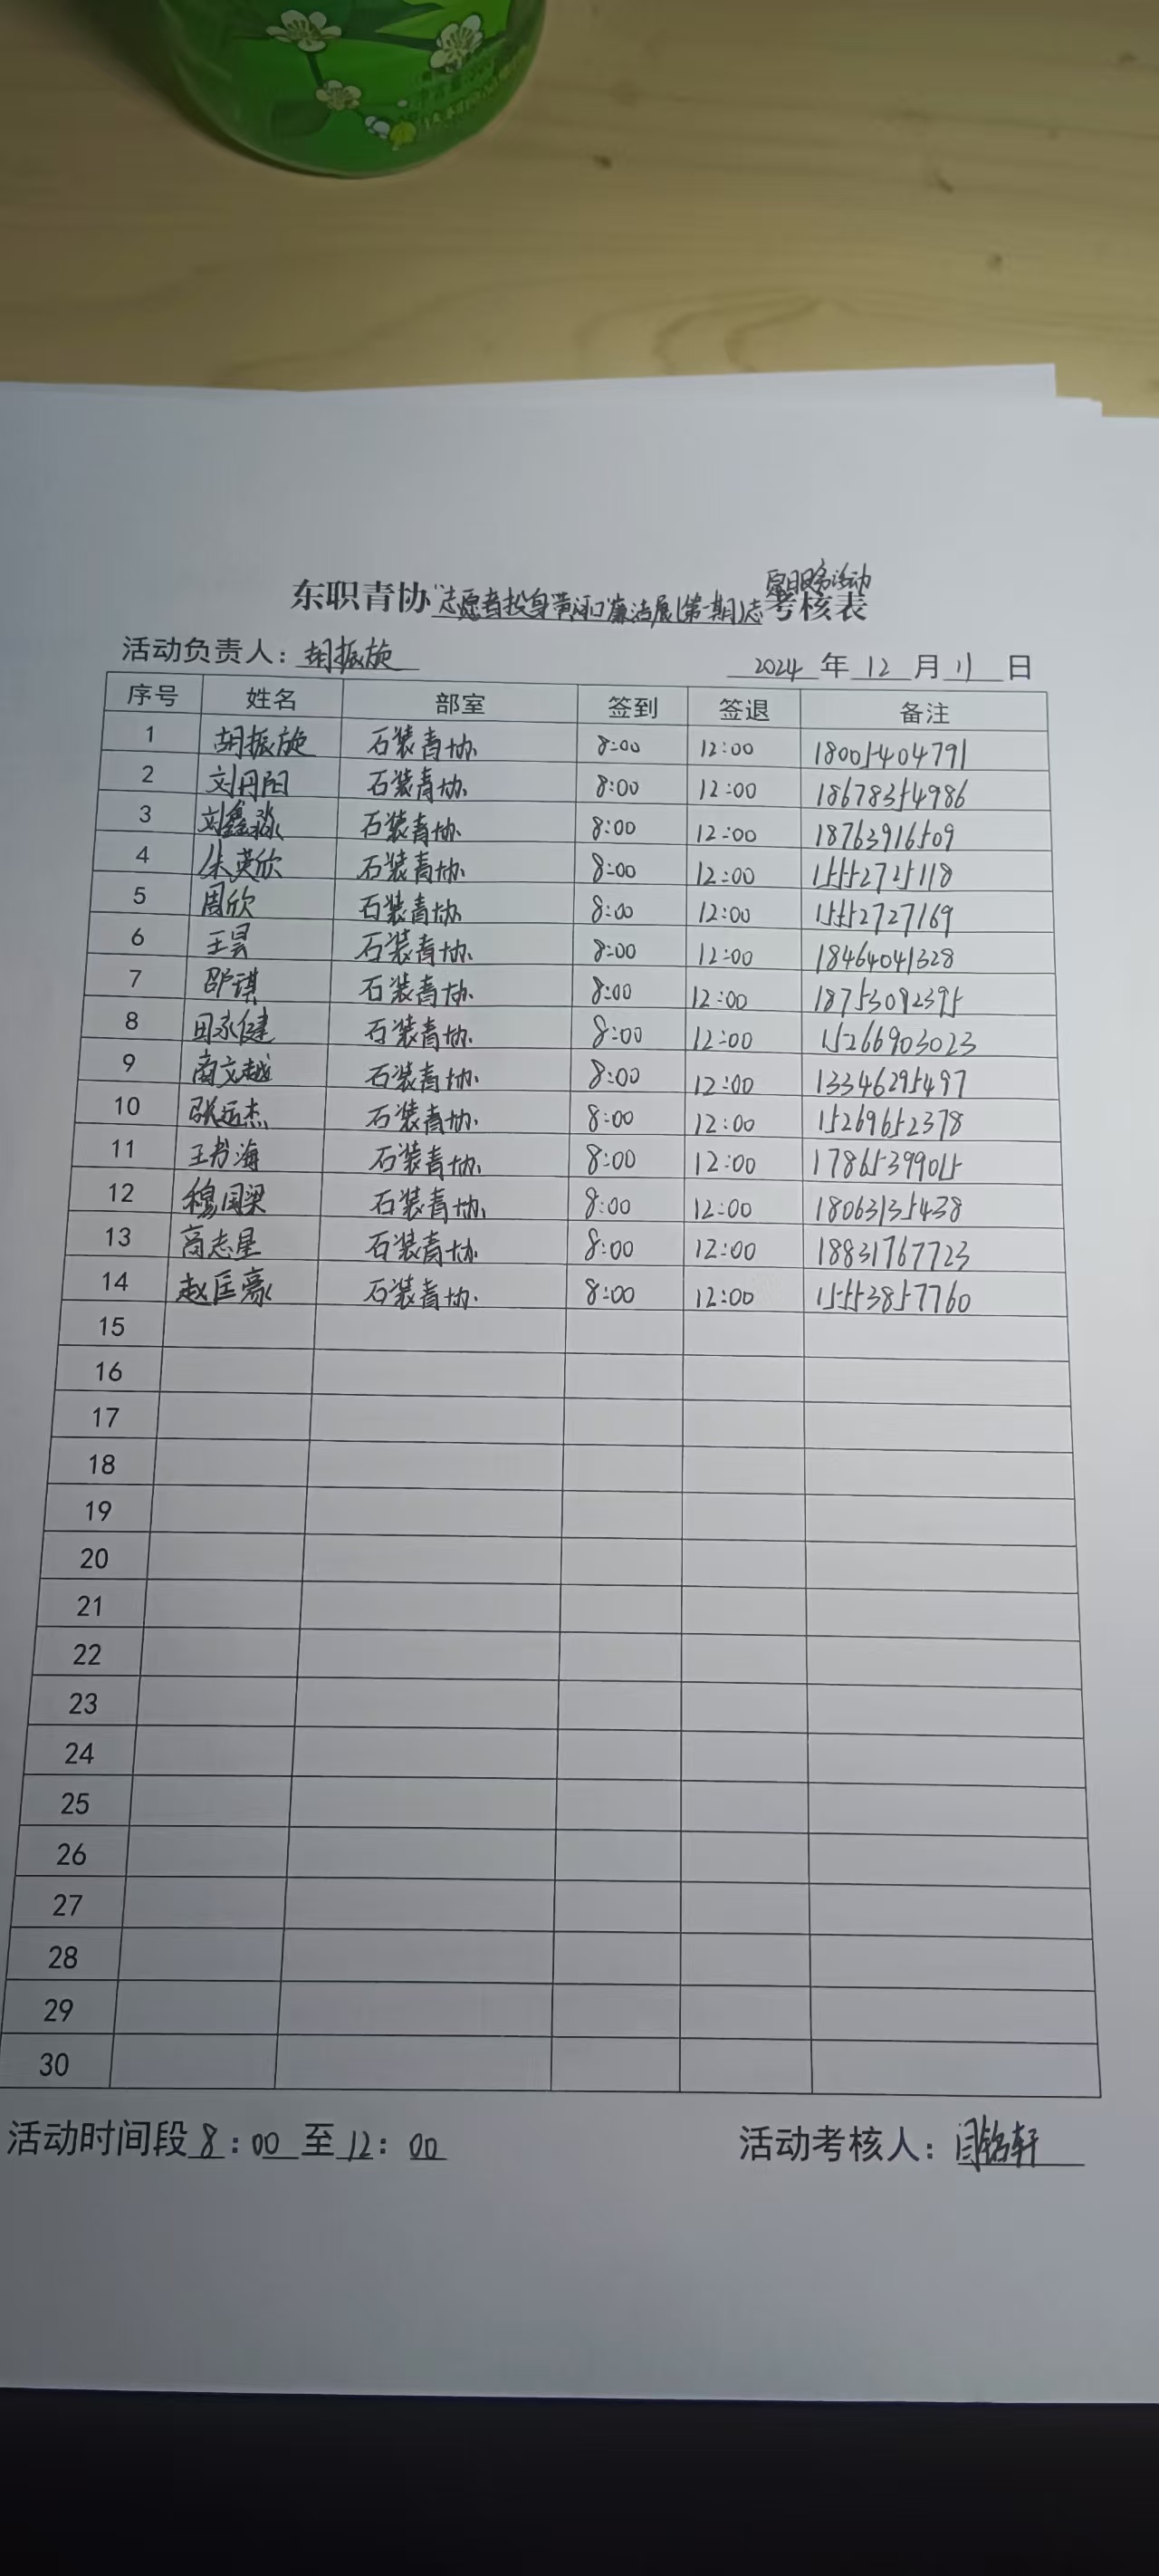 东职青协“志愿者投身黄河口廉洁展(第一期)志愿服务活动考核表
活动负责人：胡振旋 2024 年 12 月 11 日
序号 姓名 部室 签到 签退 备注
1 胡振旋 石装青协 8:00 12:00 18005404791
2 刘丹阳 石装青协 8:00 12:00 18678354986
3 刘鑫淼 石装青协 8:00 12:00 18763916509
4 朱英欣 石装青协 8:00 12:00 15552725118
5 周欣 石装青协 8:00 12:00 15552727169
6 王昊 石装青协 8:00 12:00 18464041328
7 邵琪 石装青协 8:00 12:00 18753092395
8 田永健 石装青协 8:00 12:00 15266903023
9 商文越 石装青协 8:00 12:00 13346295497
10 张远杰 石装青协 8:00 12:00 15269652378
11 王书海 石装青协 8:00 12:00 17865399015
12 穆国梁 石装青协 8:00 12:00 18063135438
13 高志星 石装青协 8:00 12:00 18831767723
14 赵匡豪 石装青协 8:00 12:00 15553857760
15
16
17
18
19
20
21
22
23
24
25
26
27
28
29
30
活动时间段 8：00 至 12：00 活动考核人：闫铭轩